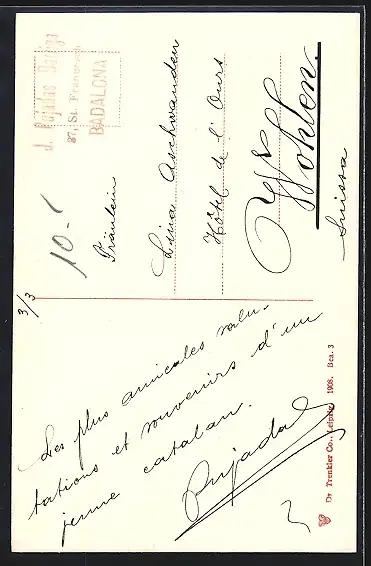 J. Pujadas
37, St. Francisco
BADALONA
10-
Fräulein
Lina Aschwanden
Hôtel de l'Ours
Wohlen.
Suissa
3/3
Les plus amicales salu-
tations et souvenirs d'un
jeune catalan.
Pujadas
Dr Trenkler Co., Leipzig 1908. Bca. 3